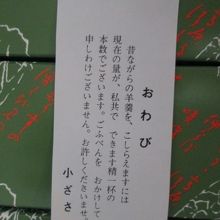 おわび
昔ながらの羊羹を、こしらえますには
現在の量が、私共で できます精一杯の
本数でございます。ごふべんを おかけして
申しわけございません。お許しくださいませ。
小ざさ